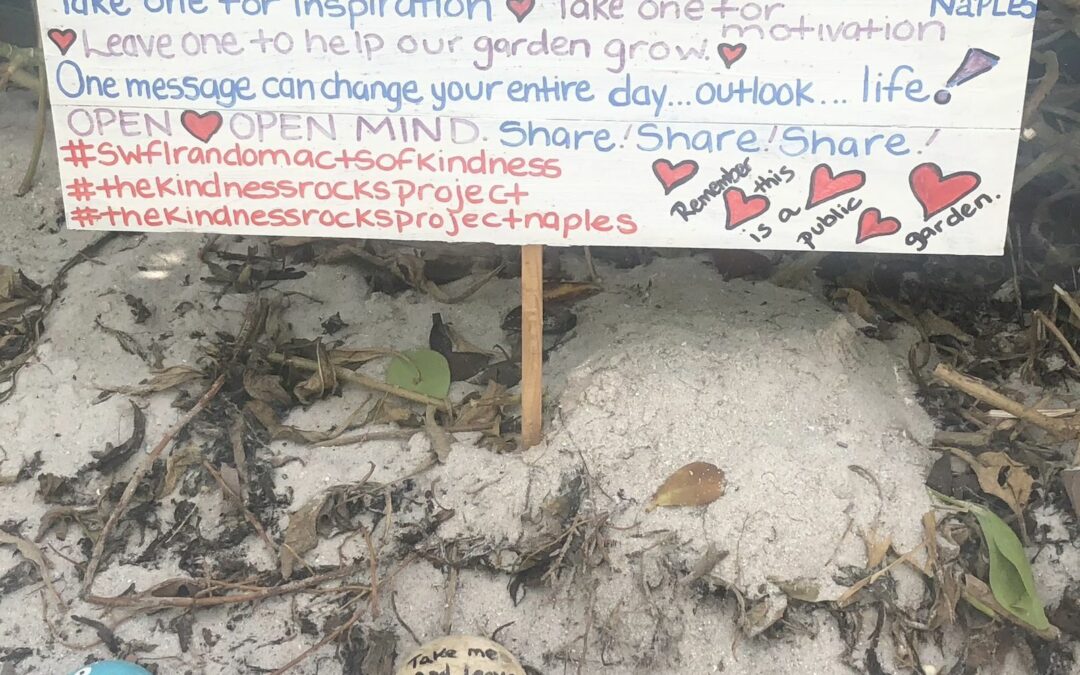 Take one for inspiration Take one for motivation
Naples
Leave one to help our garden grow.
One message can change your entire day...outlook... life!
OPEN OPEN MIND. Share! Share! Share!
#swflrandomactsofkindness
#thekindnessrocksproject
#thekindnessrocksprojectnaples
Remember this
is a public garden.
Take me
and leave